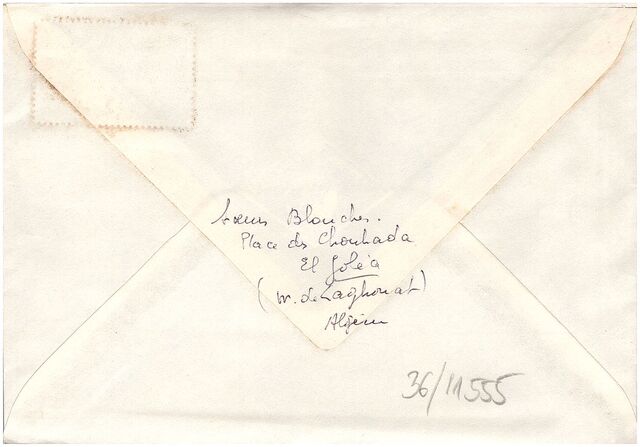 Soeurs Blanches.
Place des Chouhada
El Goléa
(W. de Laghouat)
Algérie
36/11555